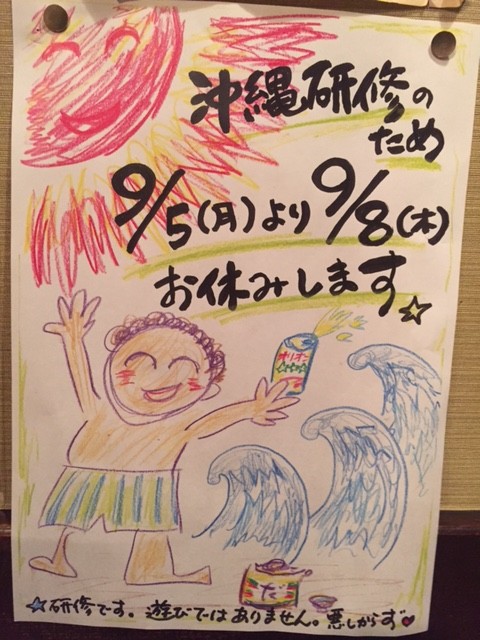 沖縄研修の
ため
9/5(月)より9/8(木)
お休みします☆
オリオン
☆☆☆
だ
☆研修です。遊びではありません。悪しからず♥